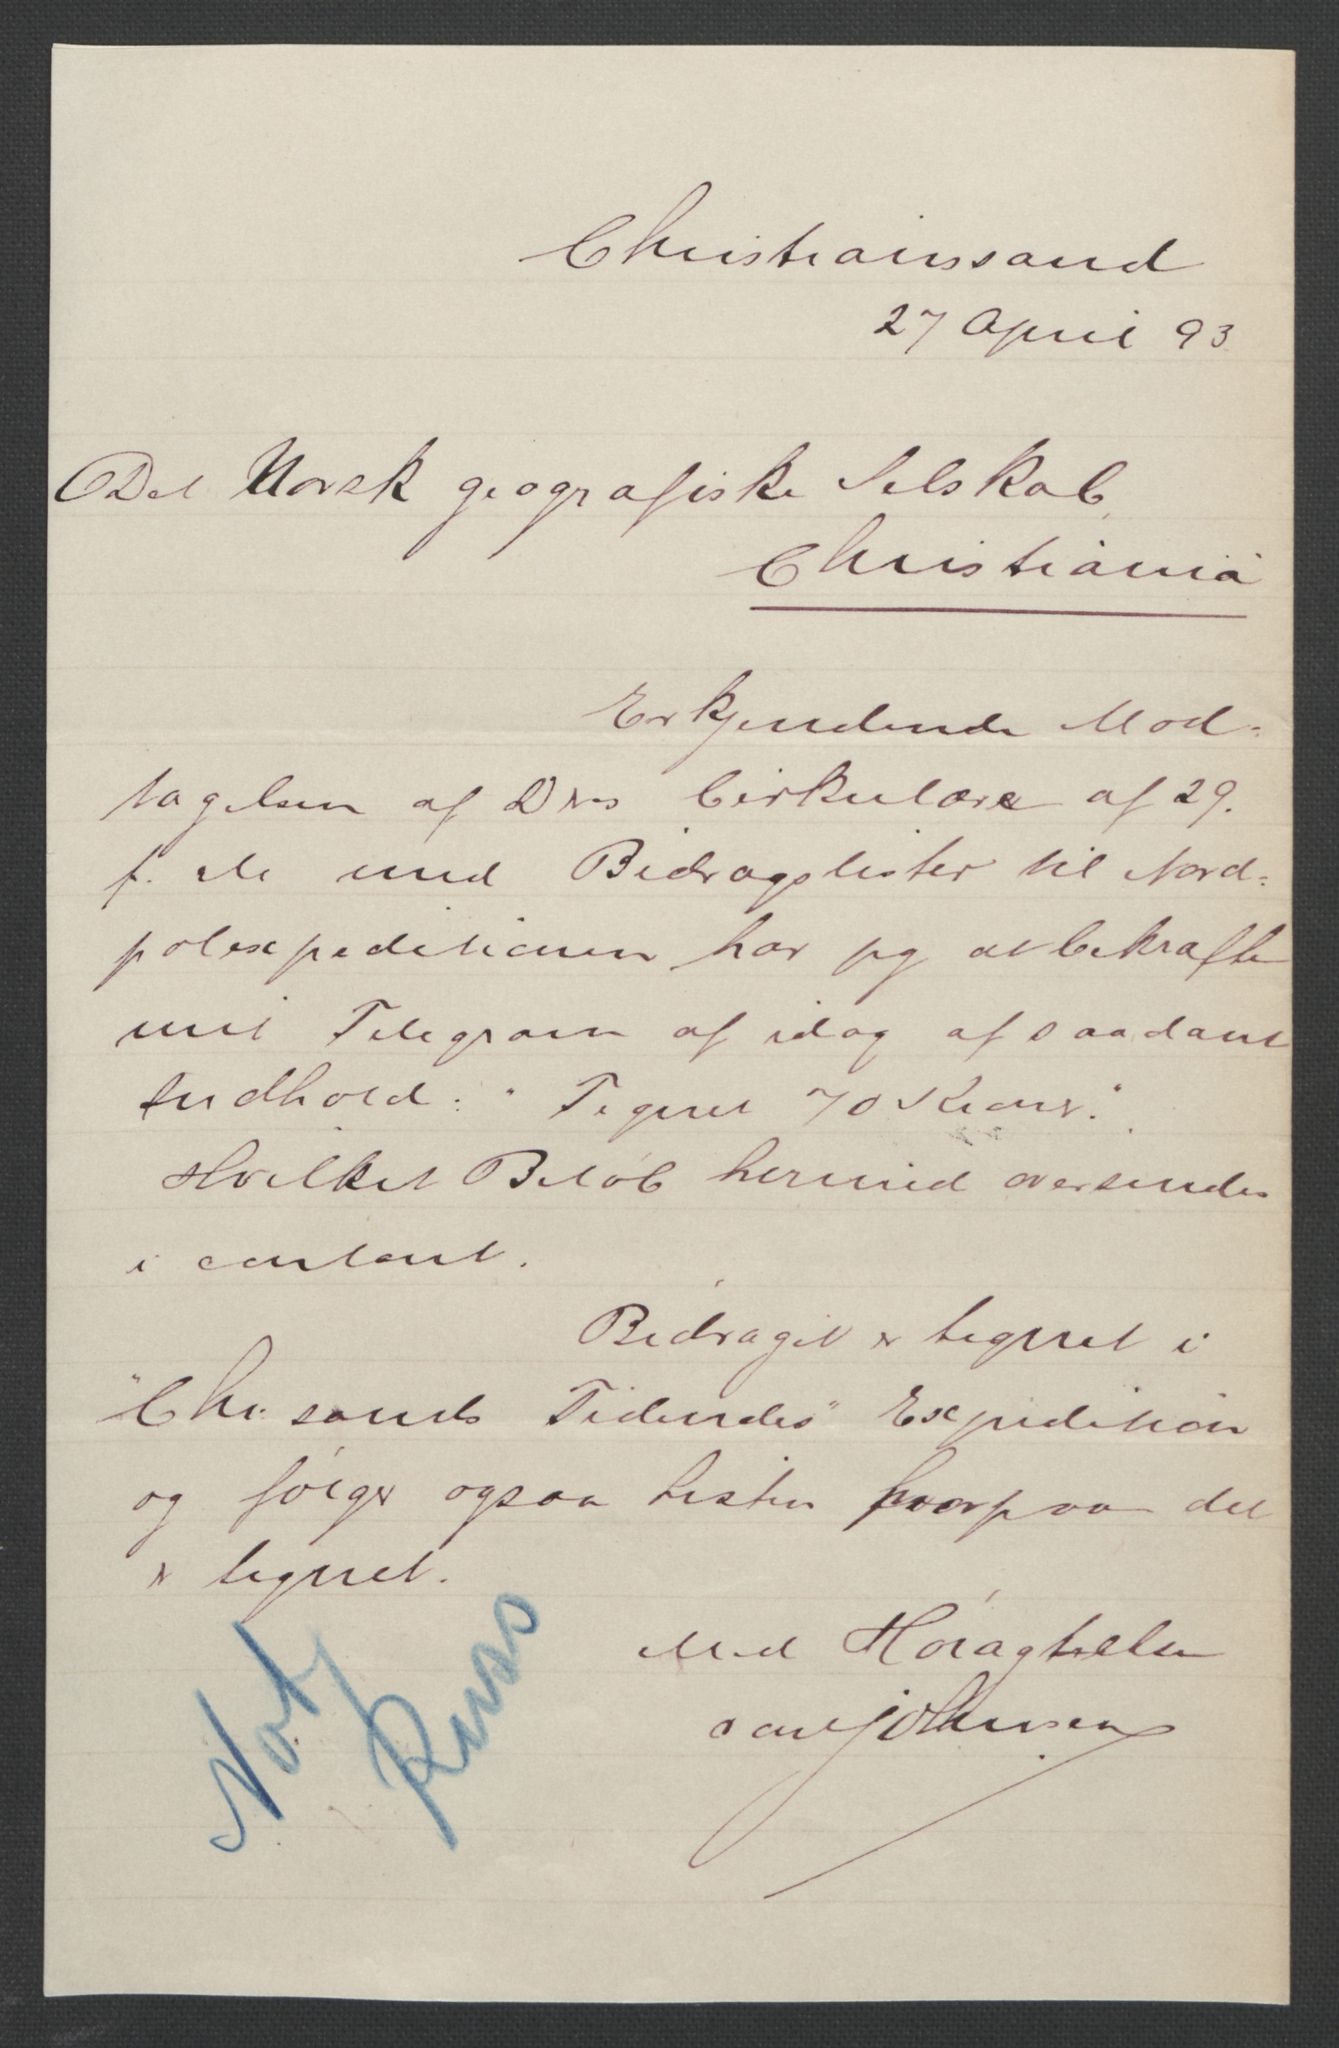 Christianssand
27 April 93
Det Norsk geografiske Selskab,
Christiania
Erkjendende Mod-
tagelsen af Drs Cirkulære af 29.
f. M. med Bidragslister til Nord-
polexpeditionen har jeg at bekræfte
mit Telegram af idag af saadant
Indhold: "Tegnet 70 Kroner."
Hvilket Beløb hermed oversendes
i contant.
Bidraget er tegnet i
"Chr.sands Tidendes" Expedition
og følger ogsaa Listen hvorpaa det
er tegnet.
Med Høiagtelse
Johnsen
Not